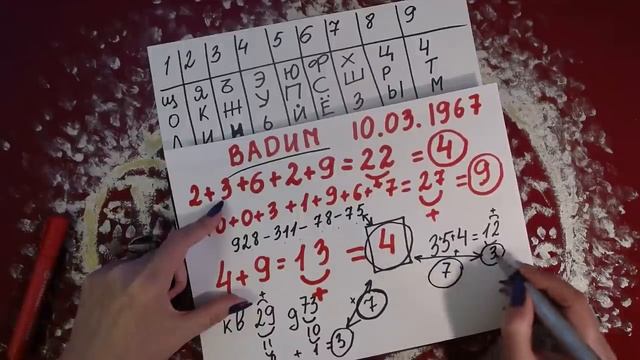 1 2 3 4 5 6 7 8 9
Щ Я Ъ Э Ю Ф Х Ц Ч
О К Ж У П С Ш Р Т
Л И Ь Й Ё З Ы М
ВАДИМ 10.03.1967
2+3+6+2+9=22=4
0+0+3+1+9+6+7=27=9
928-311-78-75
4+9=13=4
3+5+4=12
7 3
кв 29 9 73 7
11 10
+ 1=3